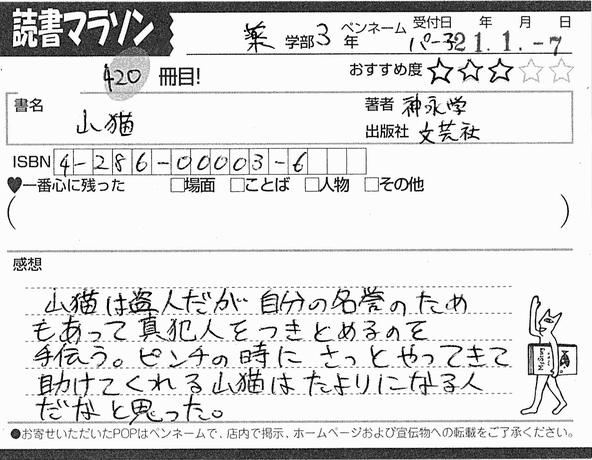 読書マラソン
薬 学部 3 年 ペンネーム 受付日 年 月 日
パーヌ 21.1.-7
420 冊目! おすすめ度 ★★★☆☆
書名 山猫
著者 神永学
出版社 文芸社
ISBN 4-286-00003-6
♥一番心に残った □場面 □ことば □人物 □その他
( )
感想
山猫は盗人だが自分の名誉のため
もあって真犯人をつきとめるのを
手伝う。ピンチの時にさっとやってきて
助けてくれる山猫はたよりになる人
だなと思った。
●お寄せいただいたPOPはペンネームで、店内で掲示、ホームページおよび宣伝物への転載をご了承ください。